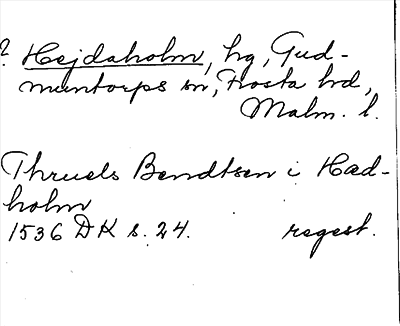 ? Hejdaholm, hg, Gud-
muntorps sn, Frosta hd,
Malm. l.
Thruels Bendtsen i Had-
holm
1536 DK s. 24. regest.